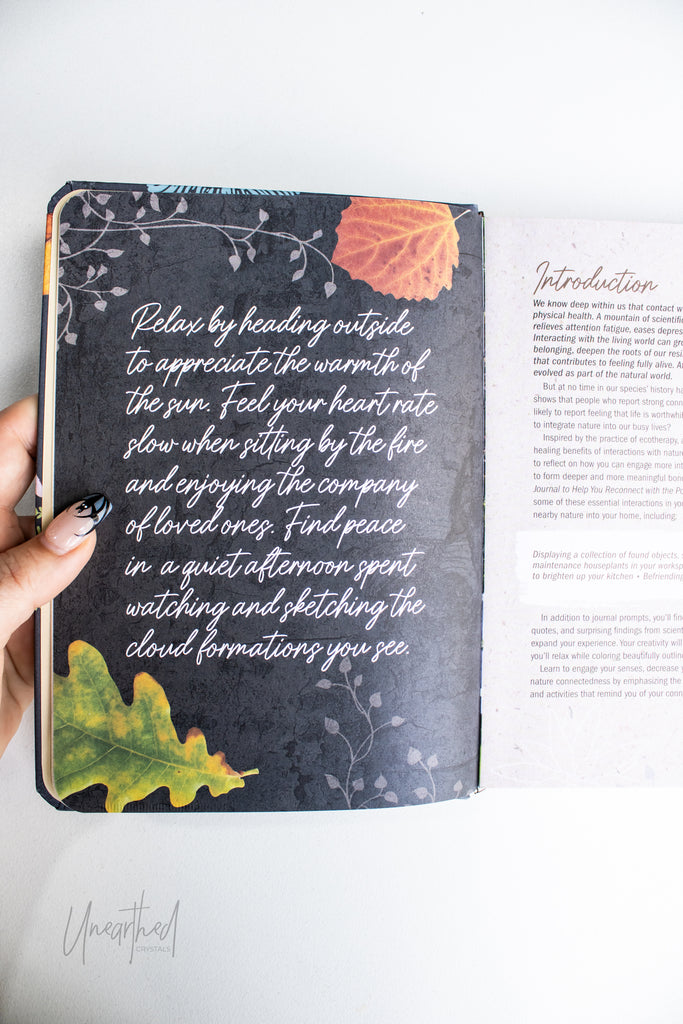 Relax by heading outside
to appreciate the warmth of
the sun. Feel your heart rate
slow when sitting by the fire
and enjoying the company
of loved ones. Find peace
in a quiet afternoon spent
watching and sketching the
cloud formations you see.
Introduction
We know deep within us that contact w
physical health. A mountain of scientific
relieves attention fatigue, eases depres
Interacting with the living world can gro
belonging, deepen the roots of our resi
that contributes to feeling fully alive. A
evolved as part of the natural world.
But at no time in our species' history ha
shows that people who report strong conn
likely to report feeling that life is worthwhil
to integrate nature into our busy lives?
Inspired by the practice of ecotherapy, a
healing benefits of interactions with nature
to reflect on how you can engage more int
to form deeper and more meaningful bond
Journal to Help You Reconnect with the Po
some of these essential interactions in you
nearby nature into your home, including:
Displaying a collection of found objects,
maintenance houseplants in your worksp
to brighten up your kitchen • Befriending
In addition to journal prompts, you'll find
quotes, and surprising findings from scient
expand your experience. Your creativity will
you'll relax while coloring beautifully outline
Learn to engage your senses, decrease y
nature connectedness by emphasizing the
and activities that remind you of your conn
Unearthed
CRYSTALS